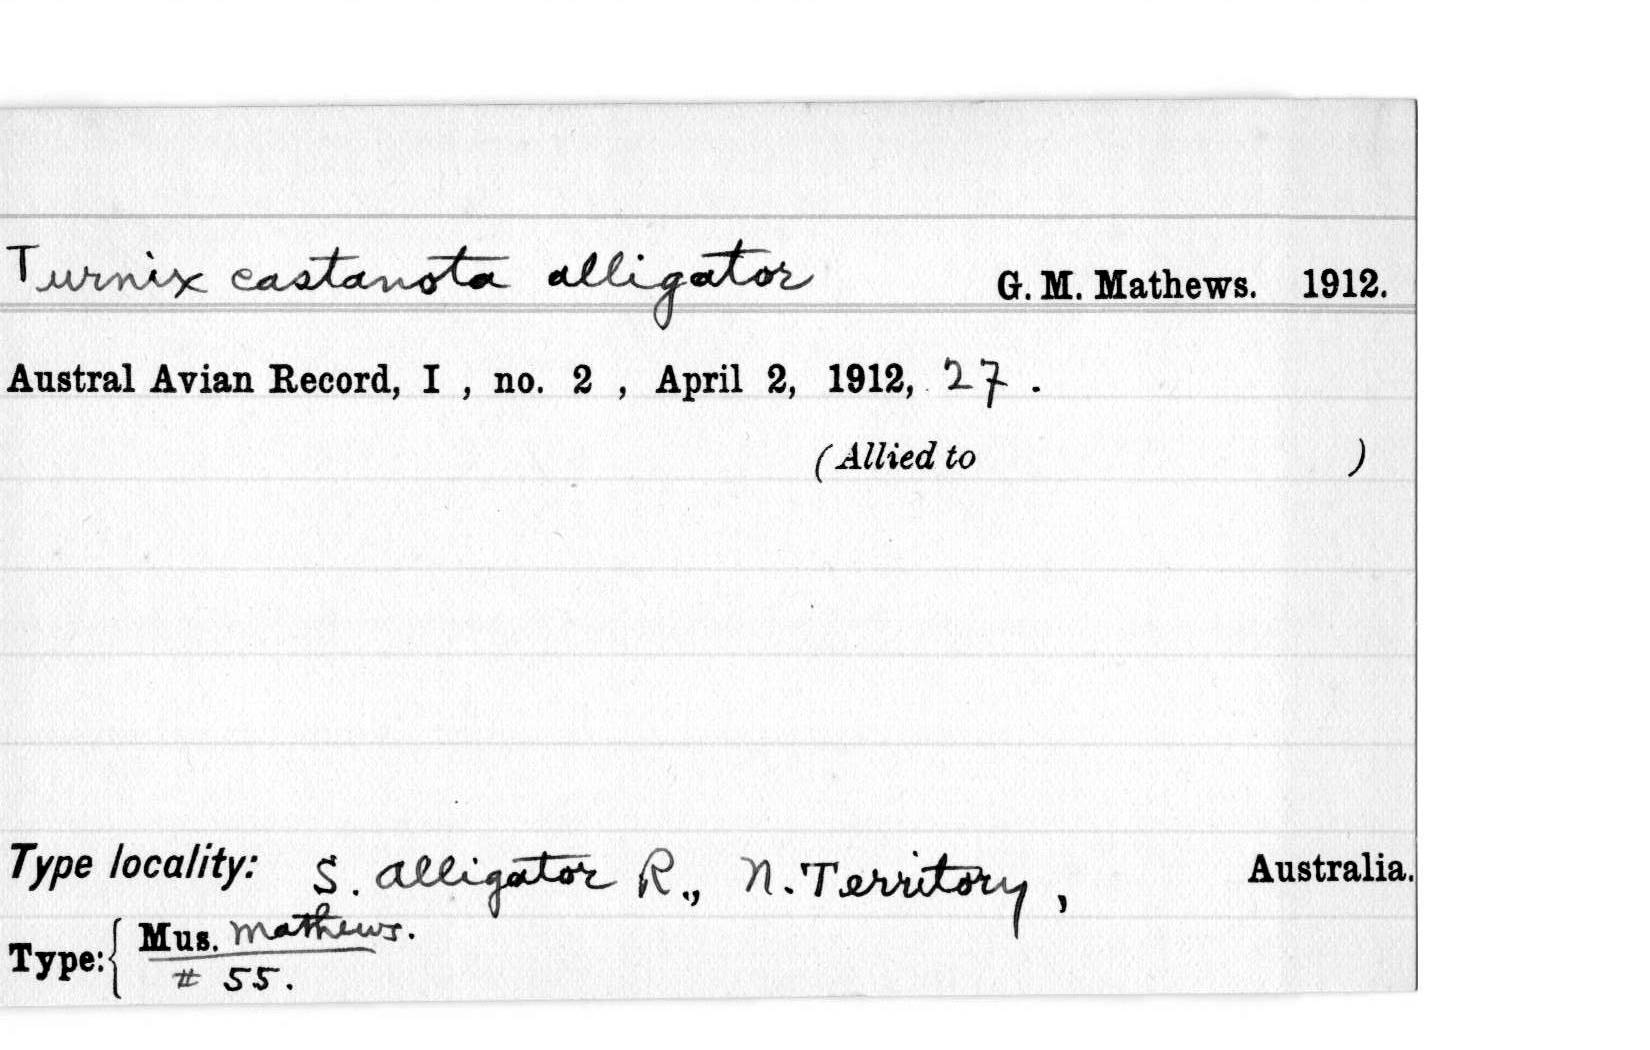 Turnix castanota alligator G. M. Mathews. 1912.
Austral Avian Record, I , no. 2 , April 2, 1912, 27 .
(Allied to )
Type locality: S. Alligator R., N. Territory, Australia.
Type: { Mus. Mathews.
# 55.